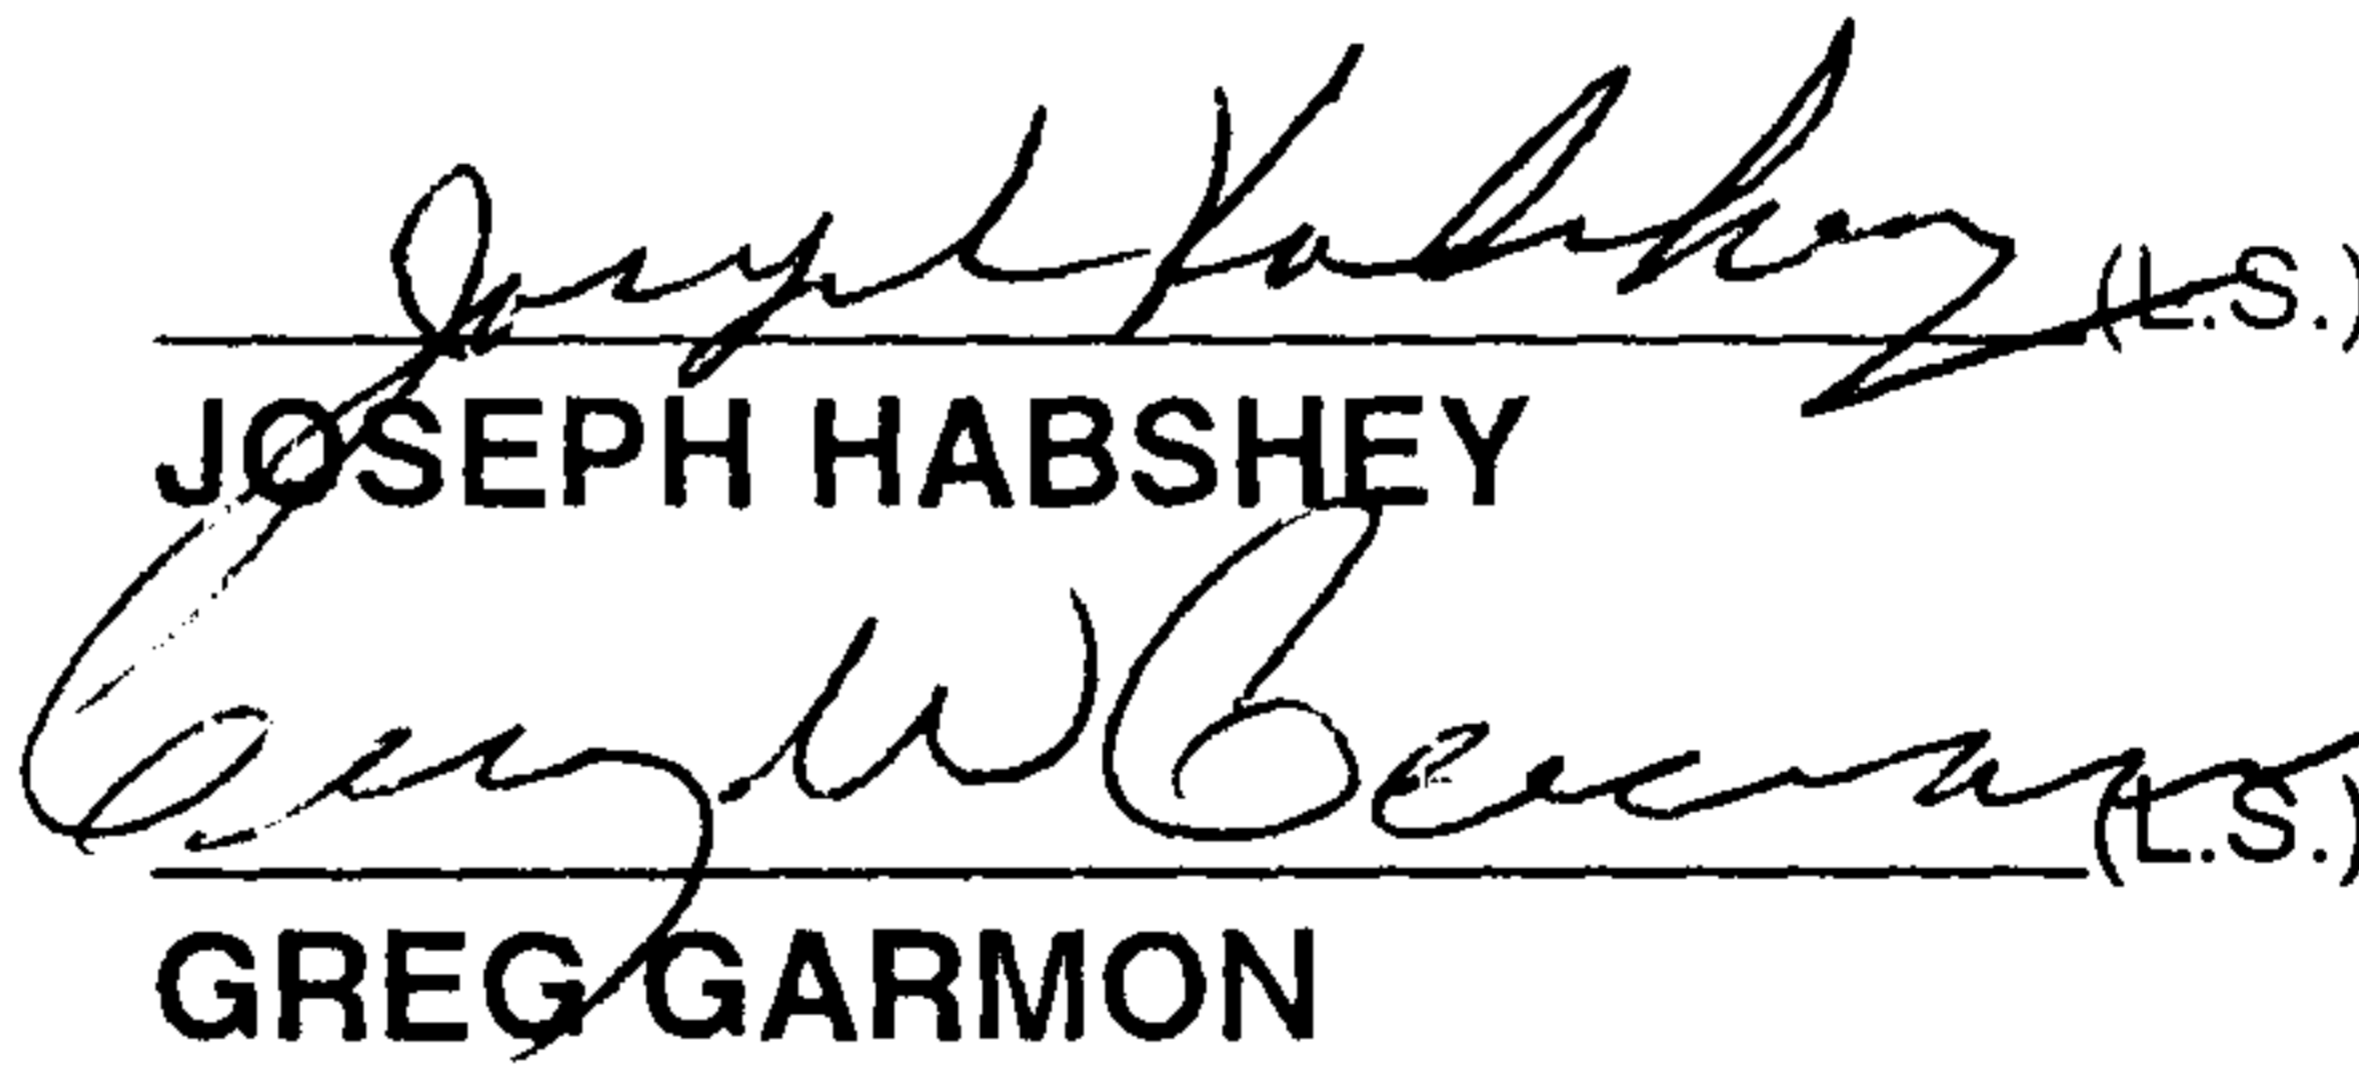 Joseph Habshey (L.S.)
JOSEPH HABSHEY
W (L.S.)
GREG GARMON